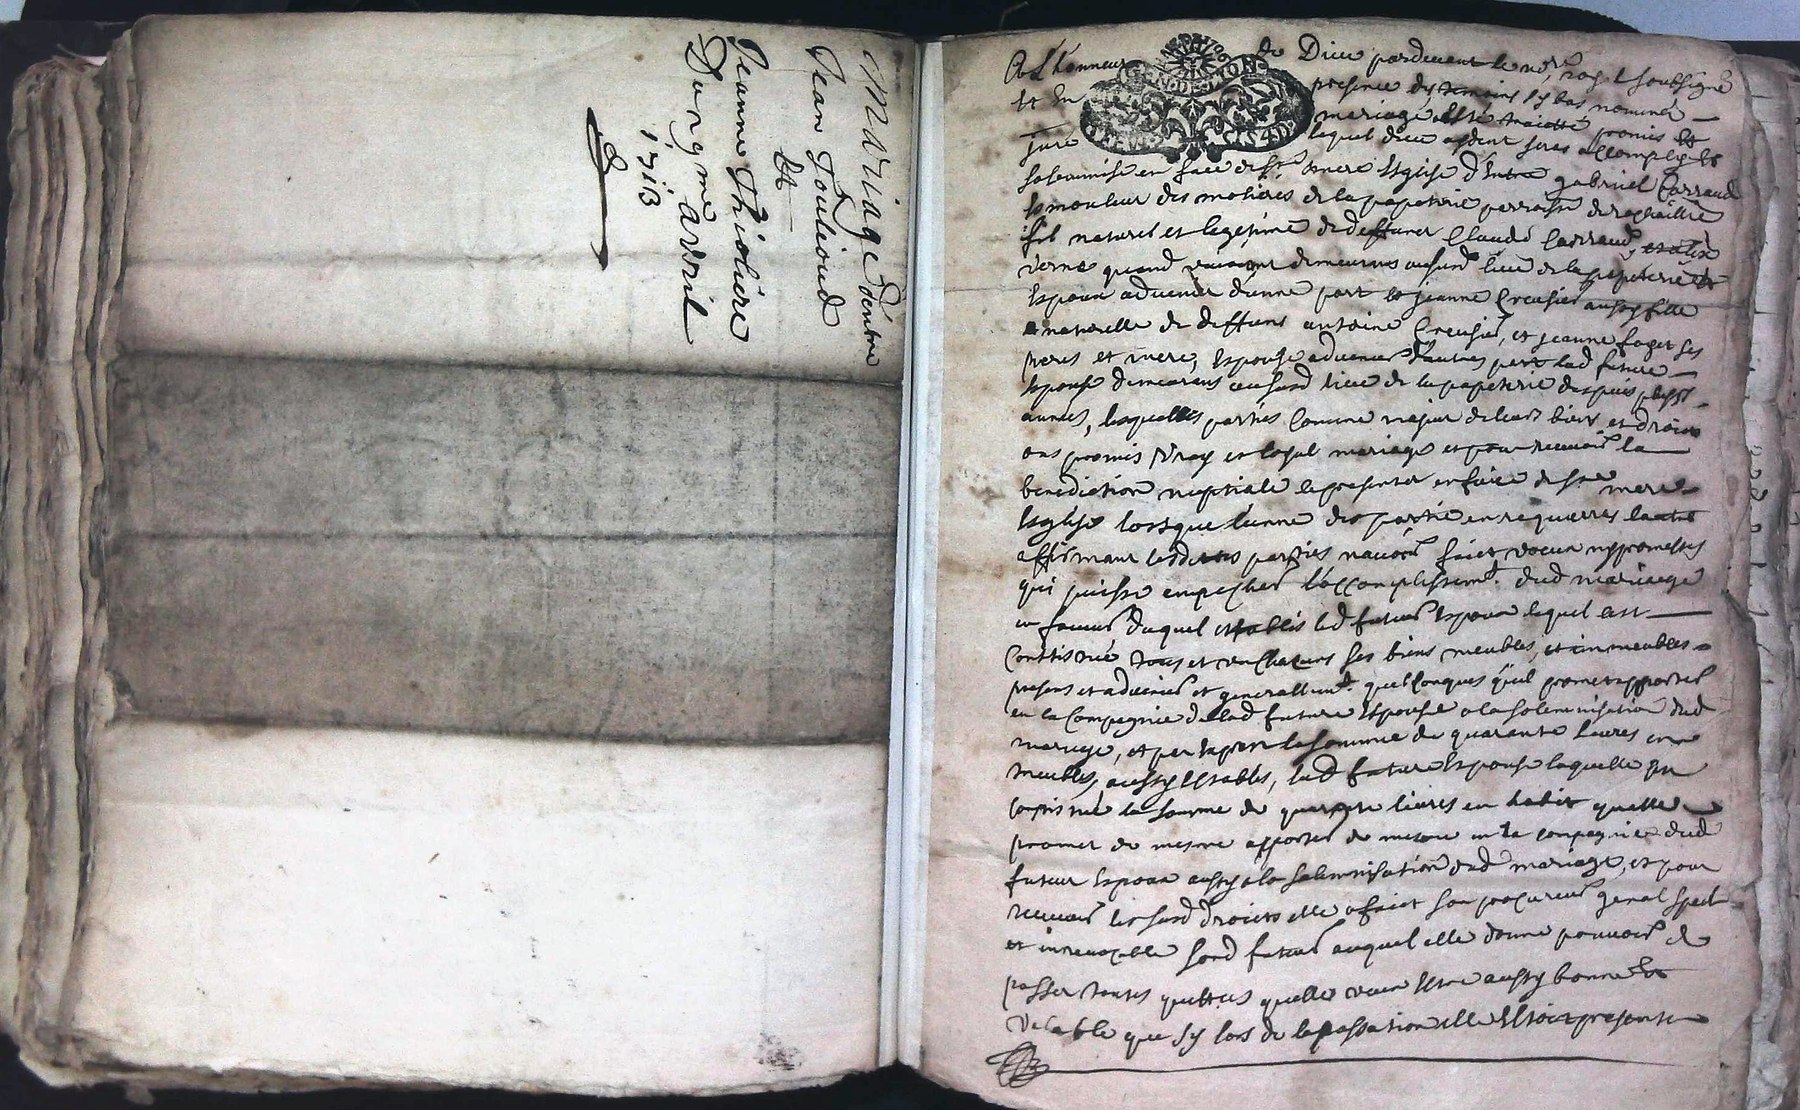 Mariage d'entre
Jean Foulioud
Et
Jeanne Thiolière
Du 29me avvril
1713
A L'honneur de Dieu pardevant le nore royal soubsigné
Et En presence des temoins sy bas nommés
mariage a esté traicté promis et
Juré lequel dieu aydant seras accomply et
solemnisé en face de ste mere Esglise d'Entre gabriel Carraud
fils naturel et legitime de deffunct Claude Carraud,
verne quand vivoient demeurans au lieu de la papeterie
Espoux advenir d'unne part et jeanne Creusier aussy fille
naturelle de deffunt antoine Creusier, et jeanne faget ses
peres et mere, Espouse advenir d'autres part lad future
Espouse demeurant au susd lieu de la papeterie despuis plusrs
années, lesquelles parties comme majur de leurs biens et droits
ont promis vray et loyal mariage et pour recevoir la
benediction nuptiale se presenter en face de ste mere
Esglise lorsque l'unne des partie en requerrera lautre
affirmant lesdittes parties n'avoir faict voeux ny promesses
qui puisse empecher l'accomplissemt. dud mariage
en faveur duquel establis led futur Espoux lequel est
Constistué tous et un chacuns ses biens meubles, et immeubles
presens et advenir et generallemt. quelconques qu'il promet apporter
en la Compagnie de lad future Espouse a la solemnisation dud
mariage, et par exprès la somme de quarante livres en
meubles, aussy Establie, lad future Espouse laquelle
constitué la somme de quarante livres en habit quelle
promet de mesme apporter de mesme en la compagnie dud
futeur Espoux aussy a la solemnisation dud mariage, et pour
recevoir les susd droits elle a faict son procureur genal specl
et irrevocable sond futeur auquel elle donne pouvoir de
passer toutes quittces quelle veux Estre aussy bonne et
valable que sy lors de la passation elle Estoit presente